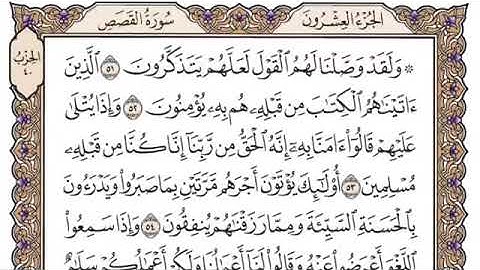 الجُزْءُ العِشْرُونَ
سُورَةُ القَصَصِ
الحِزْبُ
٤٠
* وَلَقَدْ وَصَّلْنَا لَهُمُ الْقَوْلَ لَعَلَّهُمْ يَتَذَكَّرُونَ ٥١ الَّذِينَ
ءَاتَيْنَاهُمُ الْكِتَابَ مِن قَبْلِهِ هُم بِهِ يُؤْمِنُونَ ٥٢ وَإِذَا يُتْلَى
عَلَيْهِمْ قَالُوا ءَامَنَّا بِهِ إِنَّهُ الْحَقُّ مِن رَّبِّنَا إِنَّا كُنَّا مِن قَبْلِهِ
مُسْلِمِينَ ٥٣ أُوْلَٰئِكَ يُؤْتَوْنَ أَجْرَهُم مَّرَّتَيْنِ بِمَا صَبَرُوا وَيَدْرَءُونَ
بِالْحَسَنَةِ السَّيِّئَةَ وَمِمَّا رَزَقْنَاهُمْ يُنفِقُونَ ٥٤ وَإِذَا سَمِعُوا
اللَّغْوَ أَعْرَضُوا عَنْهُ وَقَالُوا لَنَا أَعْمَالُنَا وَلَكُمْ أَعْمَالُكُمْ سَلَامٌ